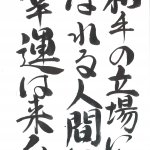 相手の立場に
なれる人間に
幸運は来